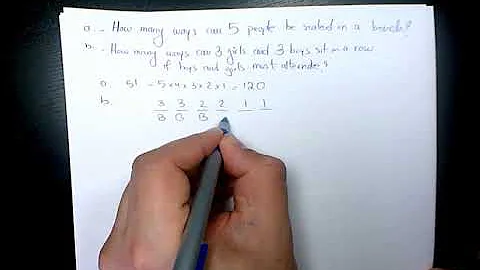 a.- How many ways can 5 people be seated in a bench?
b.- How many ways can 3 girls and 3 boys sit in a row
if boys and girls must alternate?
a. 5! = 5x4x3x2x1 = 120
b. 3 3 2 2 1 1
B G B